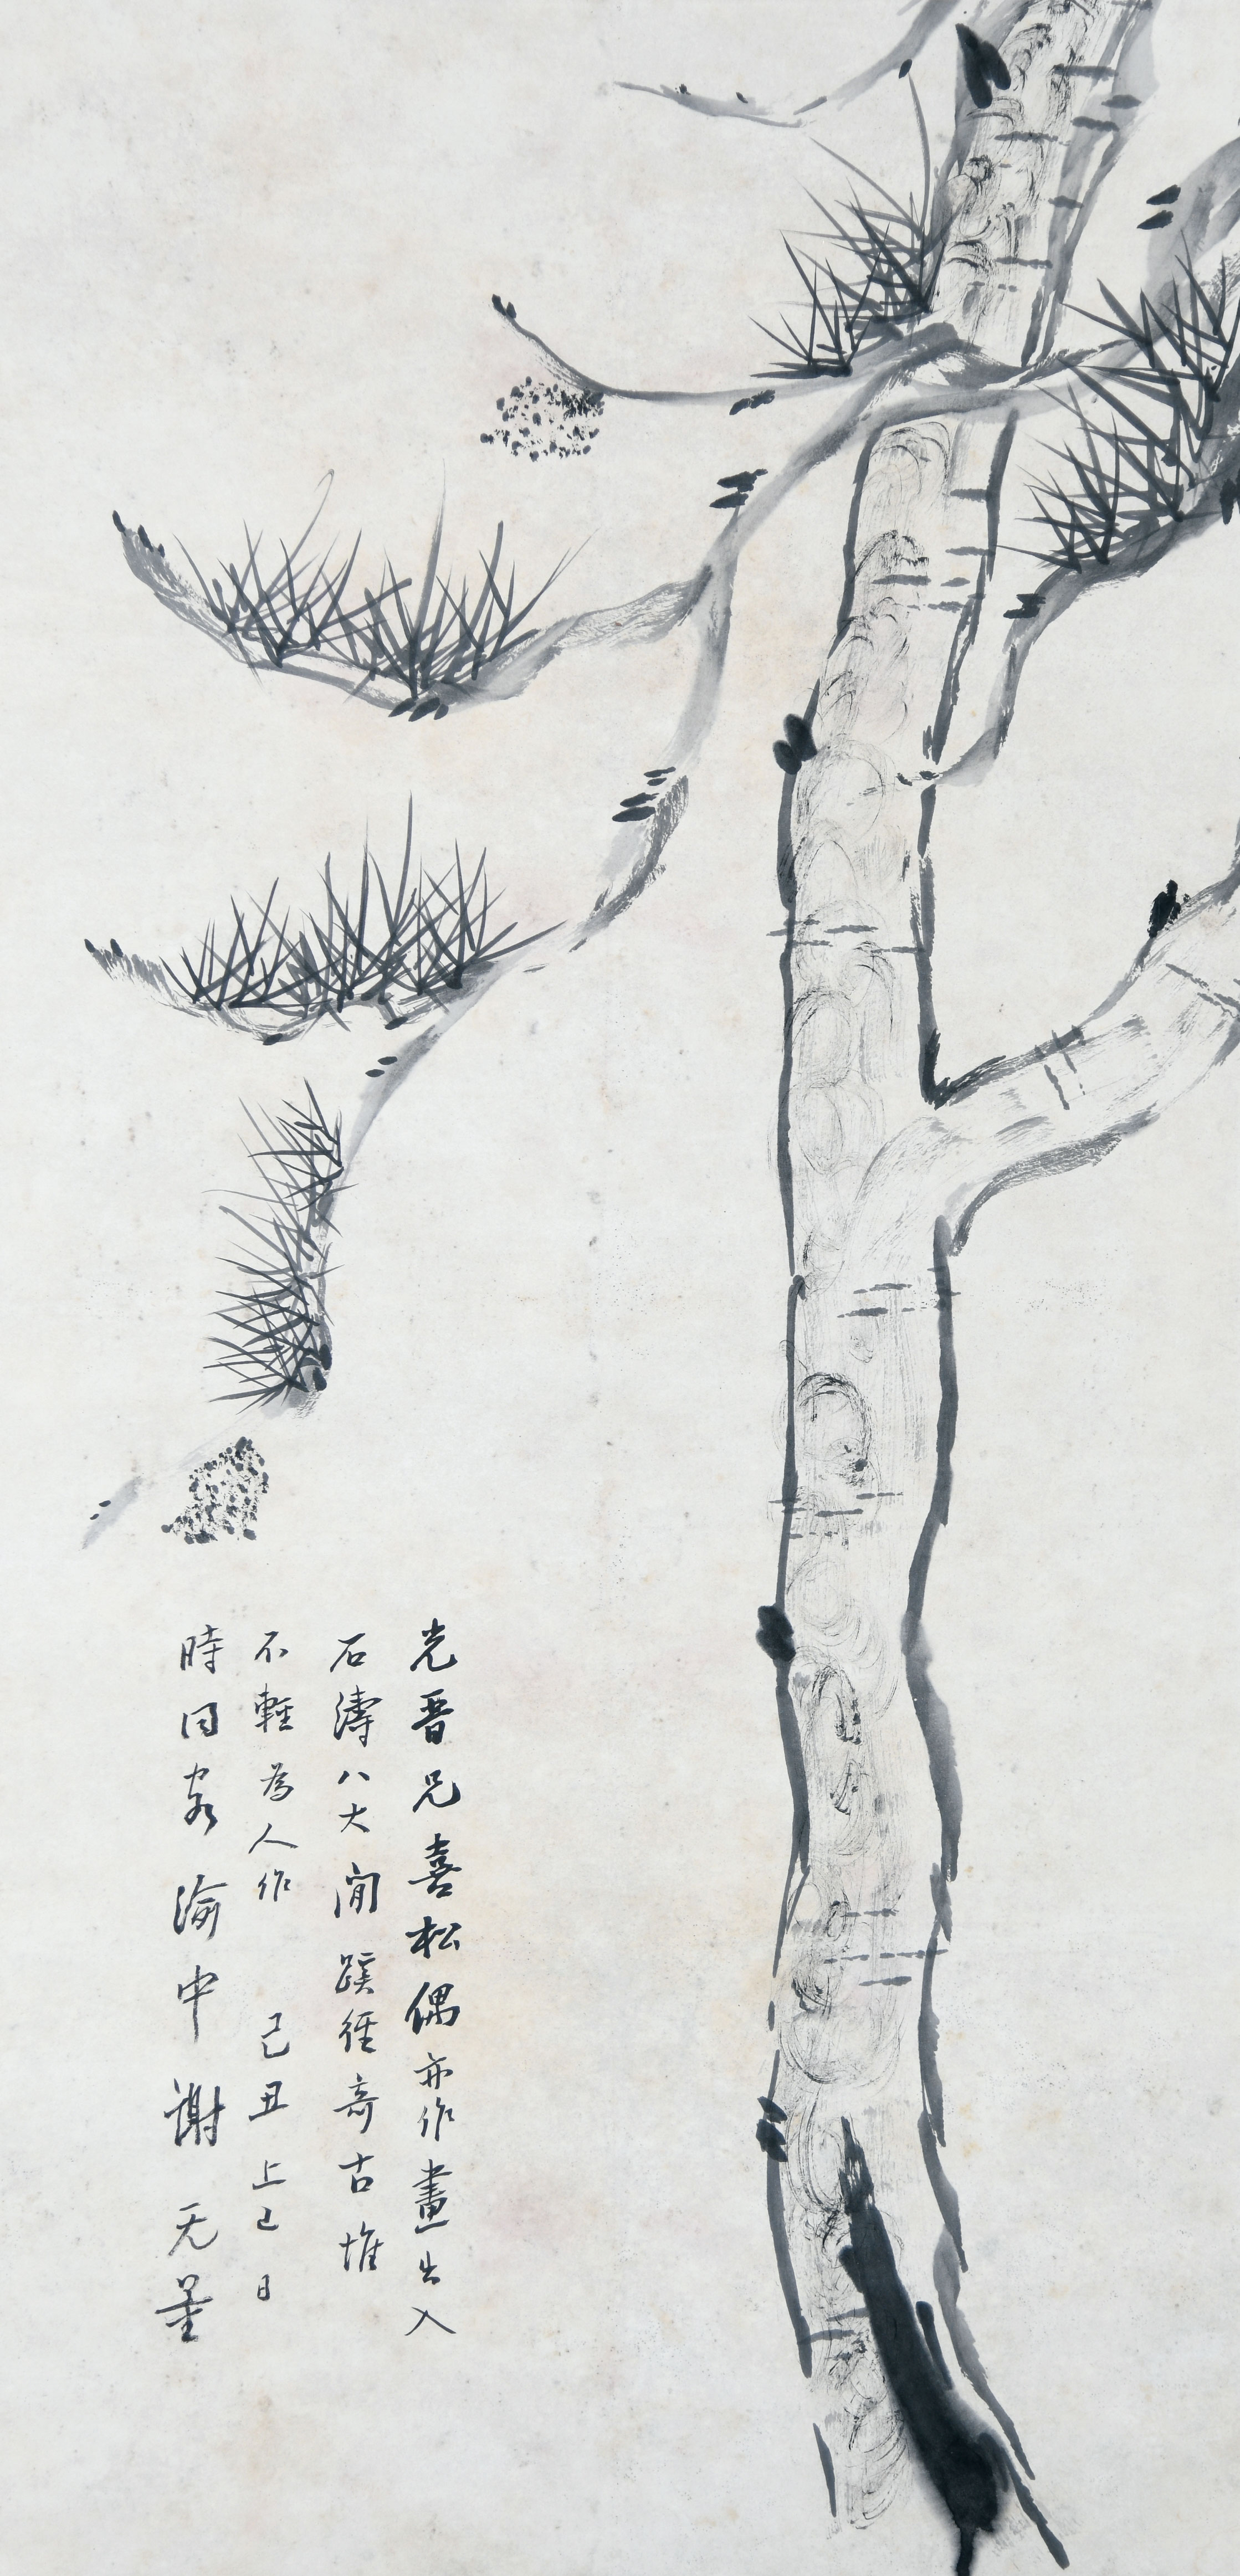 光晋兄喜松偶亦作畫出入
石濤八大間蹊徑奇古惟
不輕為人作 己丑上巳日
時同客渝中謝无量